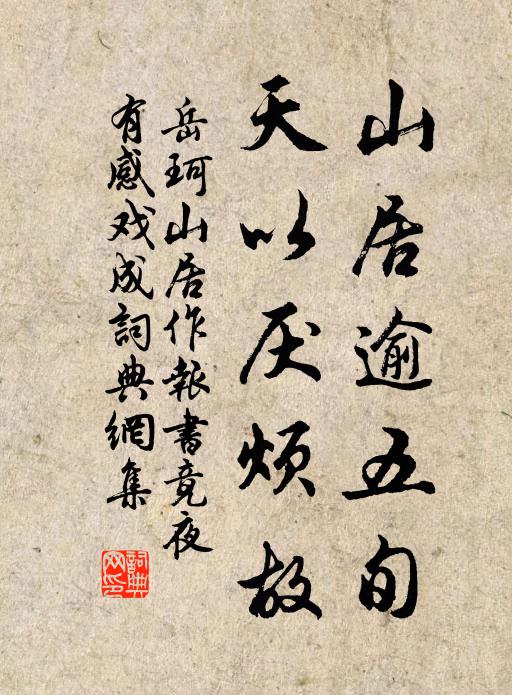 山居逾五旬
天以厌烦故
岳珂山居作報書竟夜
有感戏成詞典網集
詞典网印